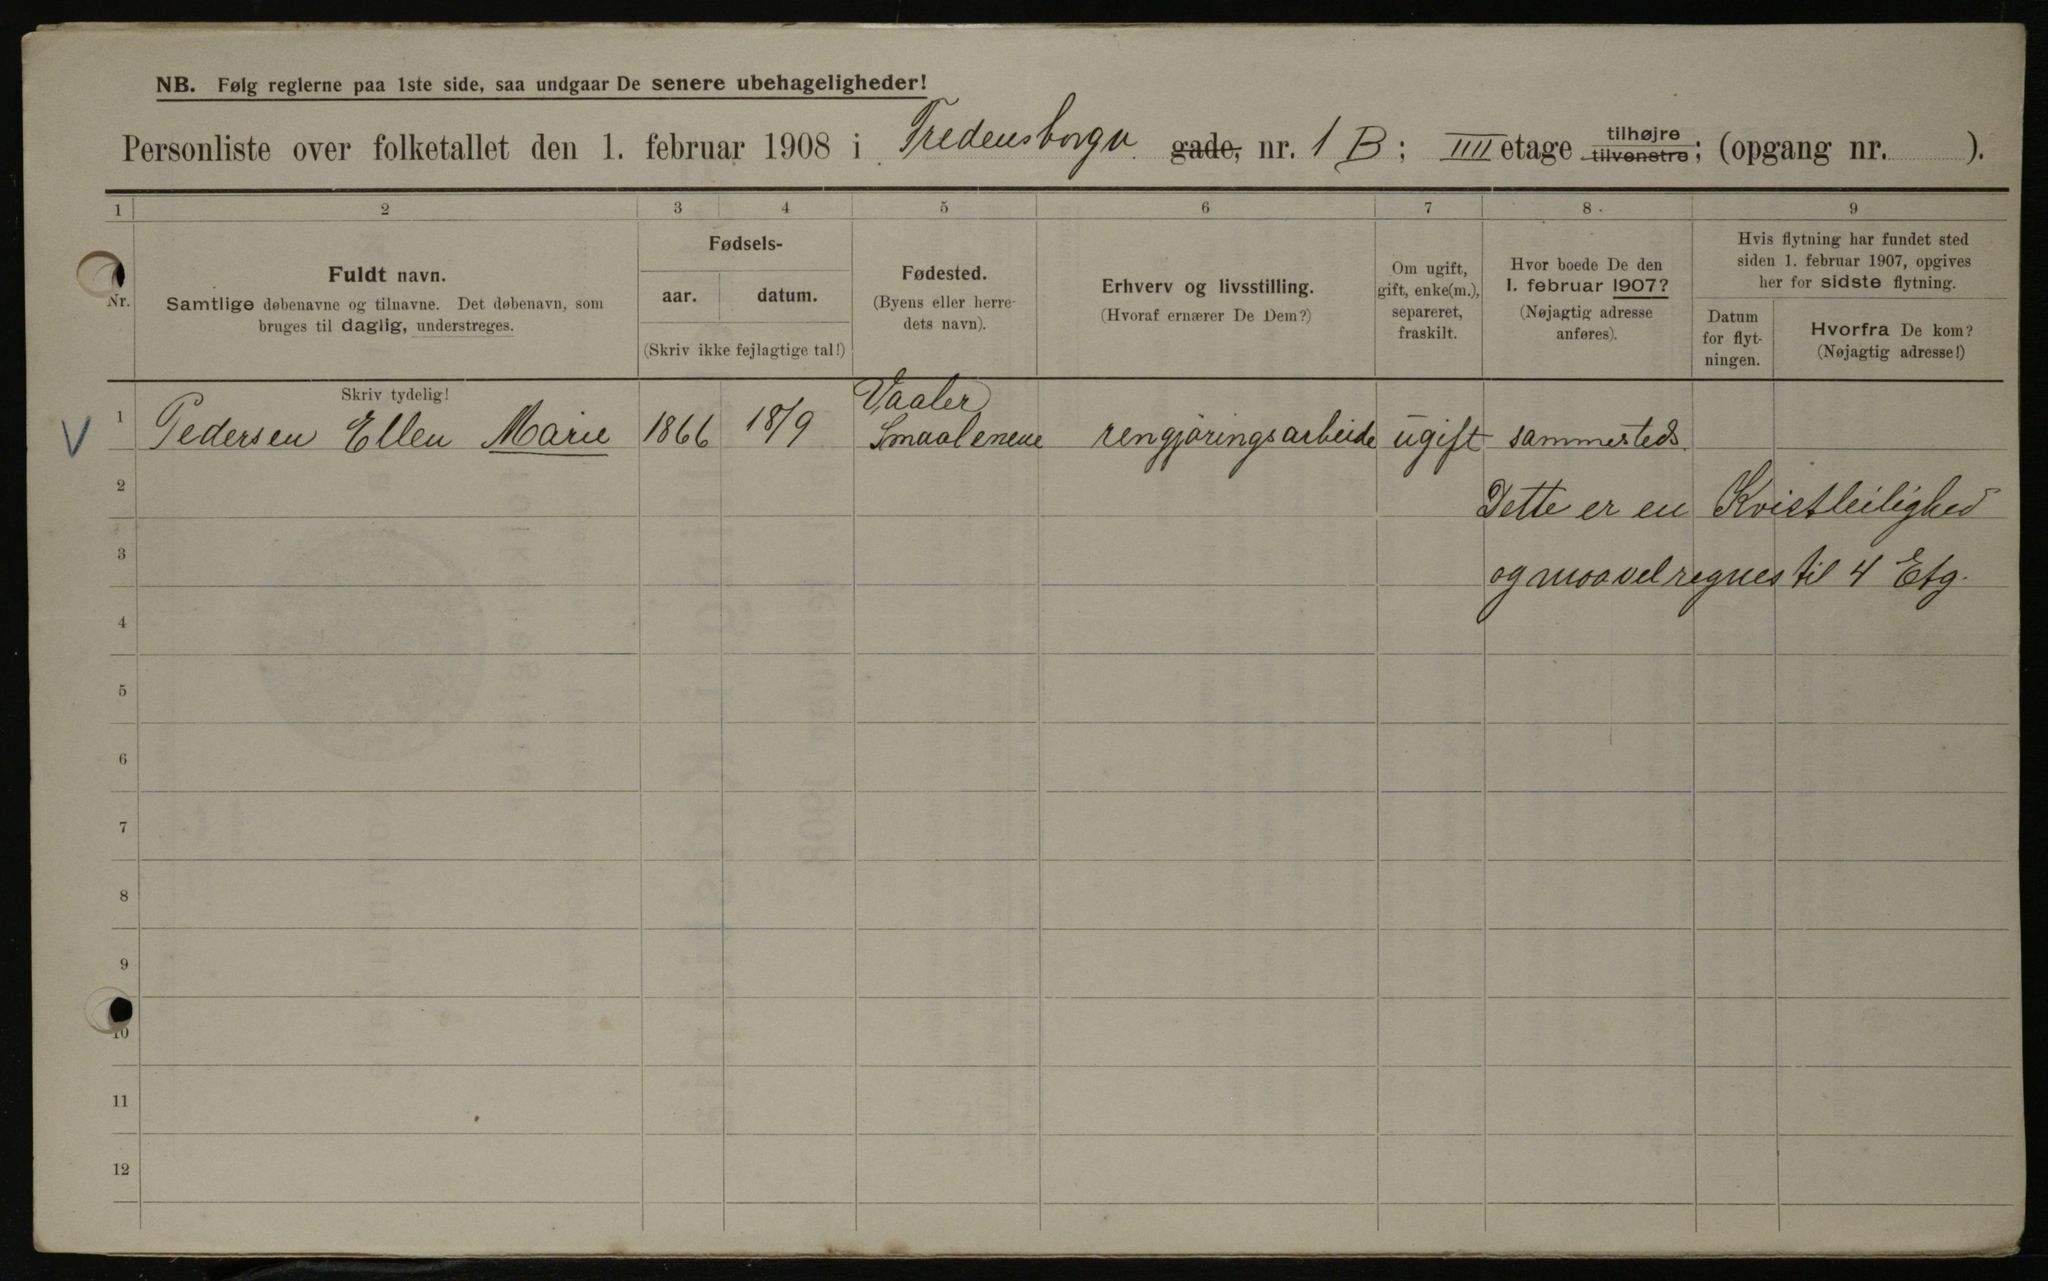 NB. Følg reglerne paa 1ste side, saa undgaar De senere ubehageligheder!
Personliste over folketallet den 1. februar 1908 i Fredensborgv gade, nr. 1 B; IIII etage tilhøjre tilvenstre; (opgang nr. ).
1 2 3 4 5 6 7 8 9
Nr.
Fuldt navn.
Samtlige døbenavne og tilnavne. Det døbenavn, som
bruges til daglig, understreges.
Fødsels-
aar. datum.
(Skriv ikke fejlagtige tal!)
Fødested.
(Byens eller herre-
dets navn).
Erhverv og livsstilling.
(Hvoraf ernærer De Dem?)
Om ugift,
gift, enke(m.),
separeret,
fraskilt.
Hvor boede De den
1. februar 1907?
(Nøjagtig adresse
anføres).
Hvis flytning har fundet sted
siden 1. februar 1907, opgives
her for sidste flytning.
Datum
for flyt-
ningen.
Hvorfra De kom?
(Nøjagtig adresse!)
Skriv tydelig!
V 1 Pedersen Ellen Marie 1866 18/9 Vaaler
Smaalenene rengjøringsarbeide ugift sammesteds.
2 Dette er en Kvistleilighed
3 og maa vel regnes til 4 Etg.
4
5
6
7
8
9
10
11
12